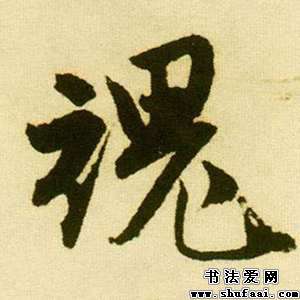 魂
书法爱网
www.shufaai.com